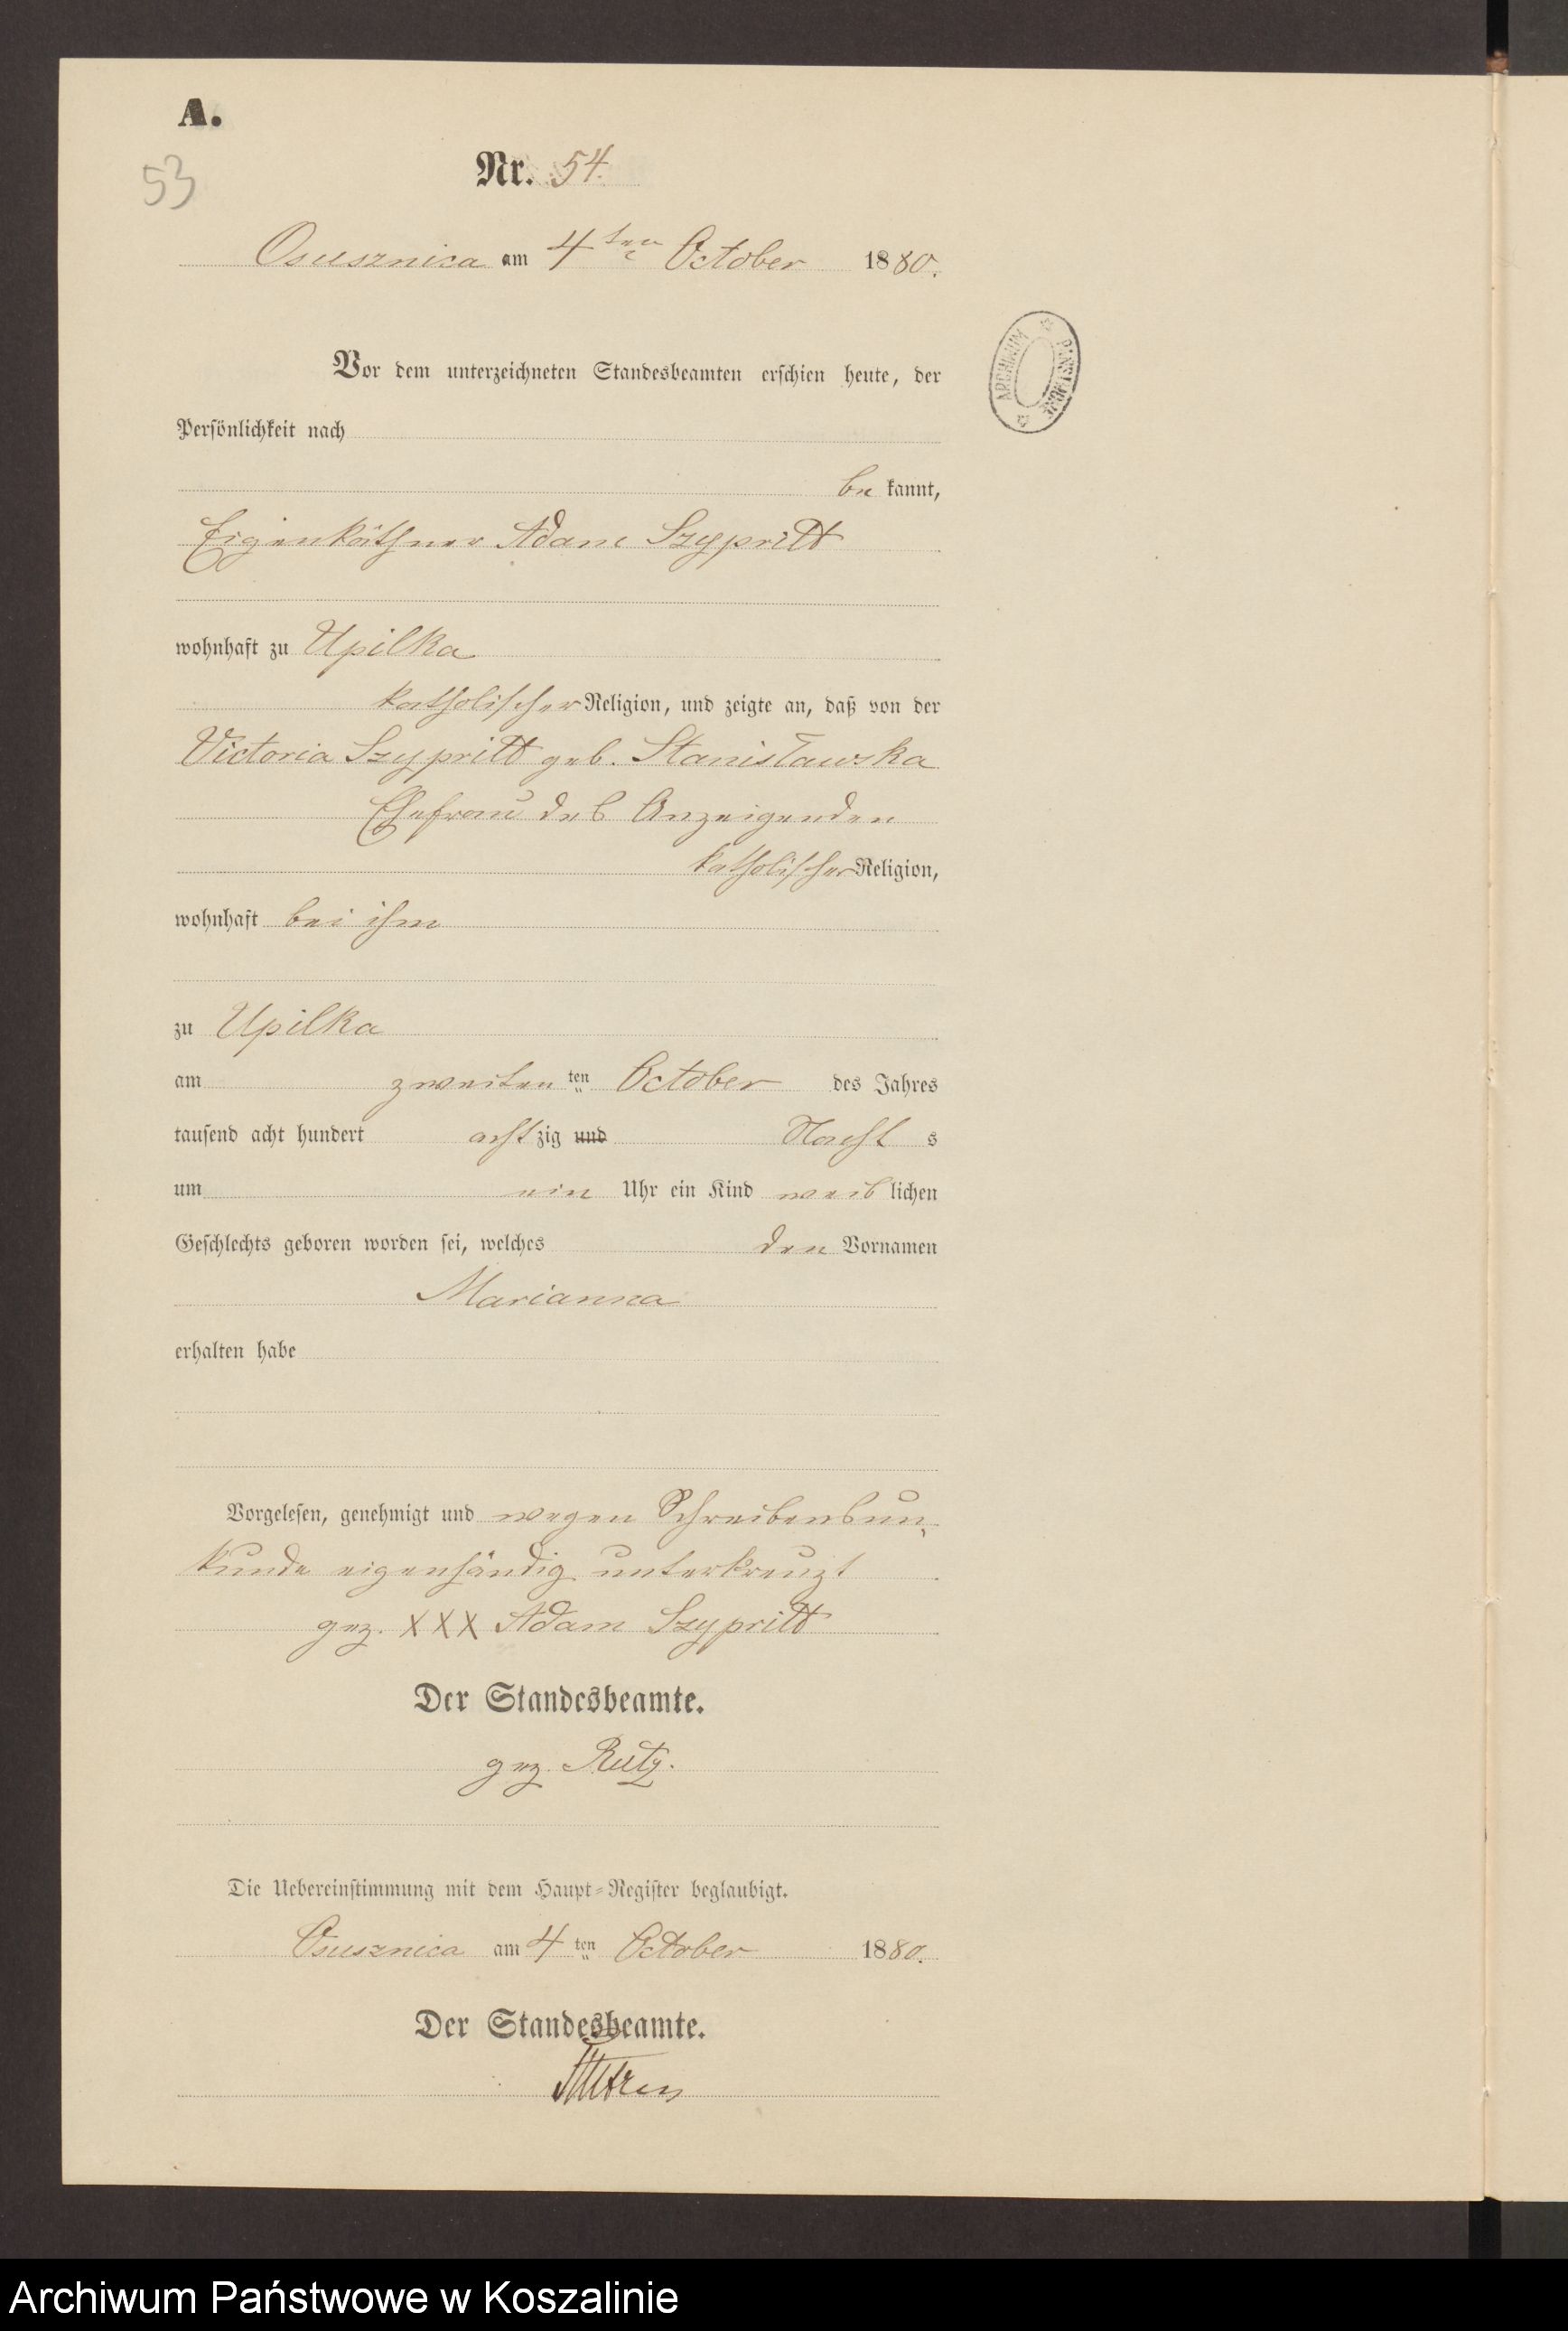 A.
53
Nr. 54.
Osusznica am 4ten October 1880.
ARCHIWUM PAŃSTWOWE
Vor dem unterzeichneten Standesbeamten erschien heute, der
Persönlichkeit nach
be kannt,
Eigenkäthner Adam Szypritt
wohnhaft zu Upilka
katholischer Religion, und zeigte an, daß von der
Victoria Szypritt geb. Stanisławska
Ehefrau des Anzeigenden
katholischer Religion,
wohnhaft bei ihm
zu Upilka
am zweiten ten October des Jahres
tausend acht hundert acht zig und Nacht s
um ein Uhr ein Kind weib lichen
Geschlechts geboren worden sei, welches den Vornamen
Marianna
erhalten habe
Vorgelesen, genehmigt und wegen Schreibensun-
kunde eigenhändig unterkreuzt
gez. XXX Adam Szypritt
Der Standesbeamte.
gez. Rutz.
Die Uebereinstimmung mit dem Haupt-Register beglaubigt.
Osusznica am 4 ten October 1880.
Der Standesbeamte.
Archiwum Państwowe w Koszalinie